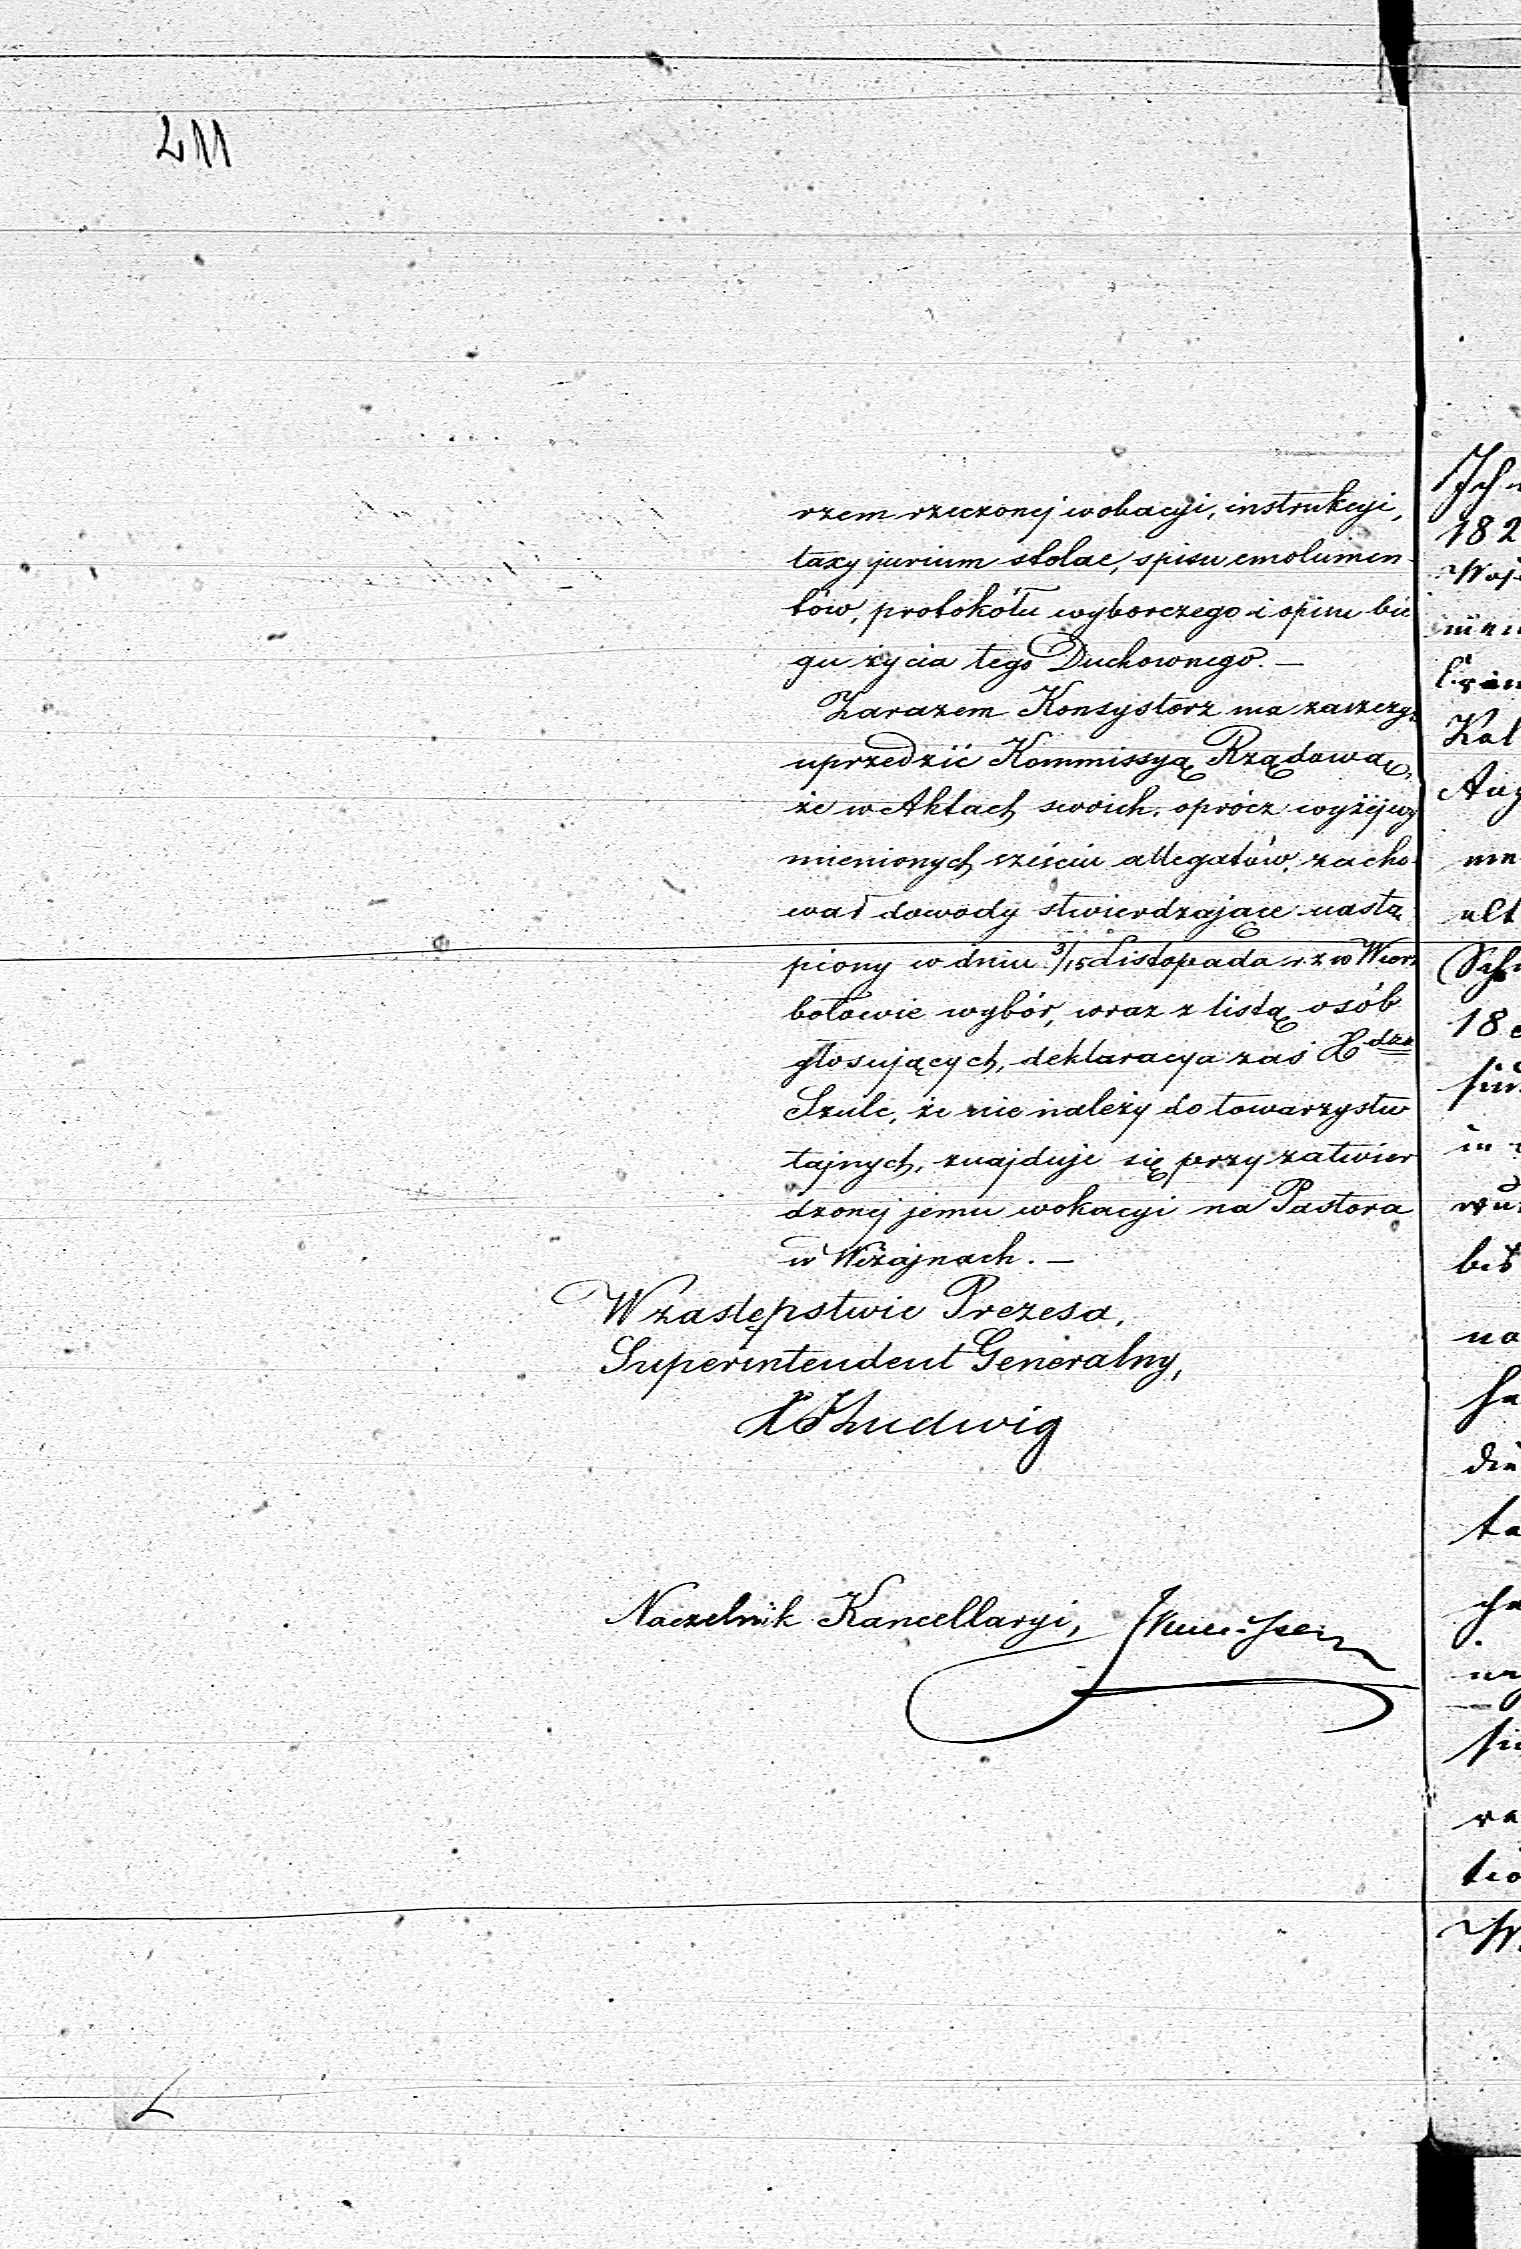 211
rzem rzeczonej wokacyi, instrukcyi,
taxy jurium stolae, spisu emolumen-
tów, protokółu wyborczego i opisu bie
gu życia tego Duchownego. —
Zarazem Konsystorz ma zaszczyt
uprzedzić Kommissyą Rządową,
że w Aktach swoich, oprócz wyżéj wy
mienionych sześciu allegatów, zacho-
wał dowody stwierdzające nastą-
piony w dniu 3/15 Listopada r. z. w Wierz
bołowie wybór, wraz z listą osób
głosujących, deklaracya zaś Xdza
Szulc, że nie należy do towarzystw
tajnych, znajduje się przy zatwier
dzonej jemu wokacyi na Pastora
w Wiżajnach. —
W zastępstwie Prezesa,
Superintendent Generalny,
Ludwig
Naczelnik Kancellaryi,
Ich
182
Woj
Kal
Aug
alt
Sch
18
in
bis
die